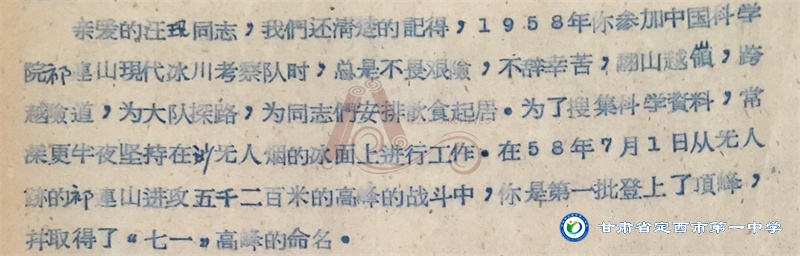 亲爱的汪琨同志，我們还淸楚的記得，1958年你参加中国科学
院祁連山現代冰川考察队时，总是不畏艰險，不辞辛苦，翻山越嶺，跨
越險道，为大队探路，为同志們安排飲食起居。为了搜集科学資料，常
深更半夜坚持在渺无人烟的冰面上进行工作。在58年7月1日从无人
跡的祁連山进攻五千二百米的高峰的战斗中，你是第一批登上了頂峰，
幷取得了“七一”高峰的命名。
甘肃省定西市第一中学